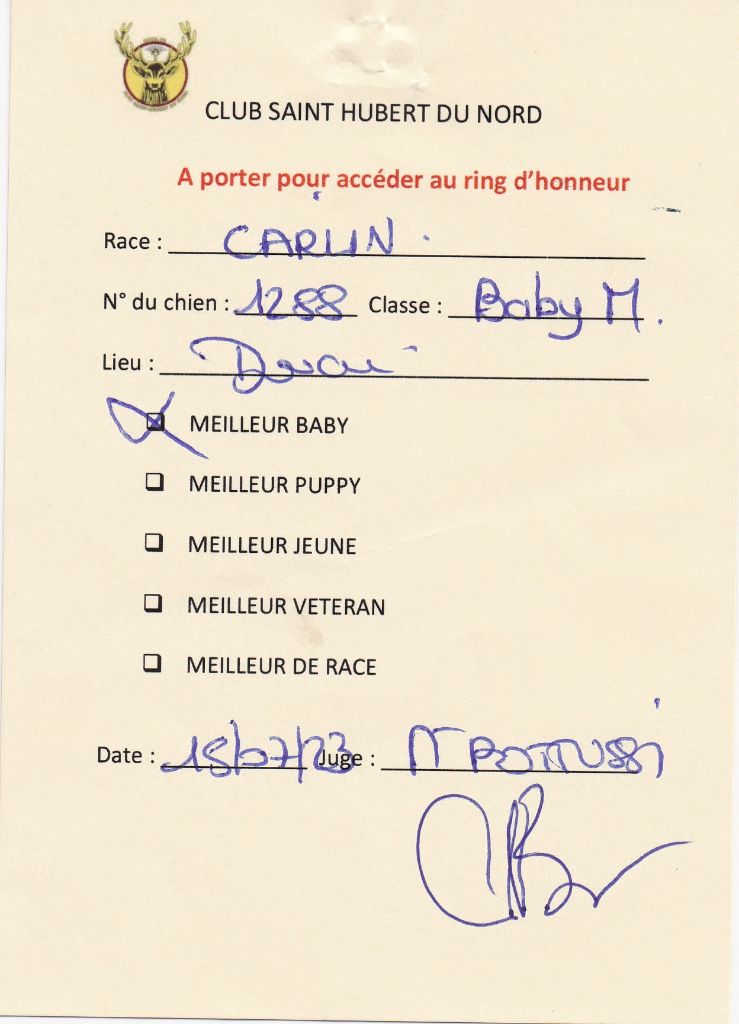 CLUB SAINT HUBERT DU NORD
A porter pour accéder au ring d'honneur
Race : CARLIN
N° du chien : 1288 Classe : Baby M.
Lieu : Douai
MEILLEUR BABY
MEILLEUR PUPPY
MEILLEUR JEUNE
MEILLEUR VETERAN
MEILLEUR DE RACE
Date : 15/07/23 Juge : Mr BOTTUSSI